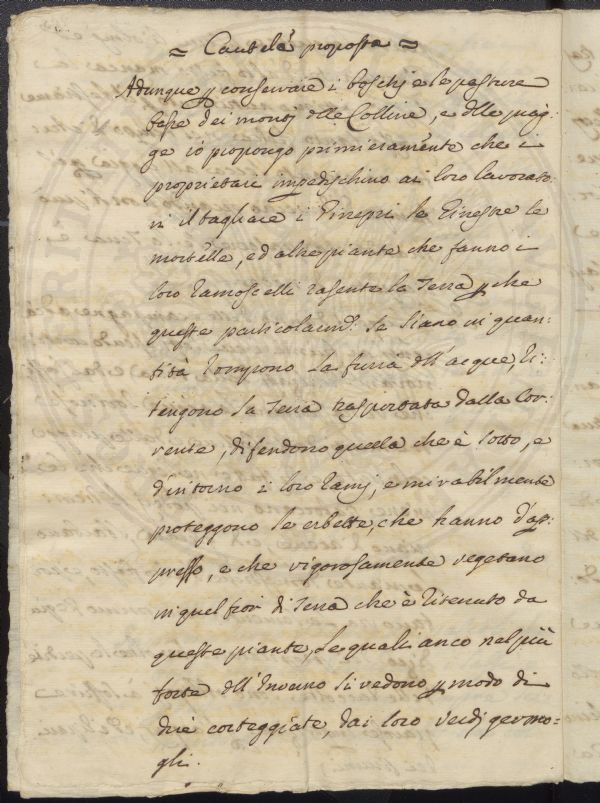 = Cautele proposte =
Adunque p conservare i boschj e le pasture
base dei montj delle Colline, e delle piag:
ge io propongo primieramente che i
proprietarj impedischino ai loro lavorato:
ri il tagliare i Ginepri le Ginestre le
mortelle, ed altre piante che fanno i
loro ramoscelli rasente la Terra p che
queste particolarm: se siano in quan:
tità rompono la furia dell'acque, ri:
tengono la Terra trasportata dalla Cor:
rente, difendono quella che è sotto, e
d'intorno i loro ramj, e mirabilmente
proteggono le erbette, che hanno d'ap:
presso, e che vigorosamente vegetano
in quel fior di Terra che è ritenuto da
queste piante, le quali anco nel più
forte dell'Inverno si vedono p modo di
dire corteggiate, dai loro verdi germo:
gli.